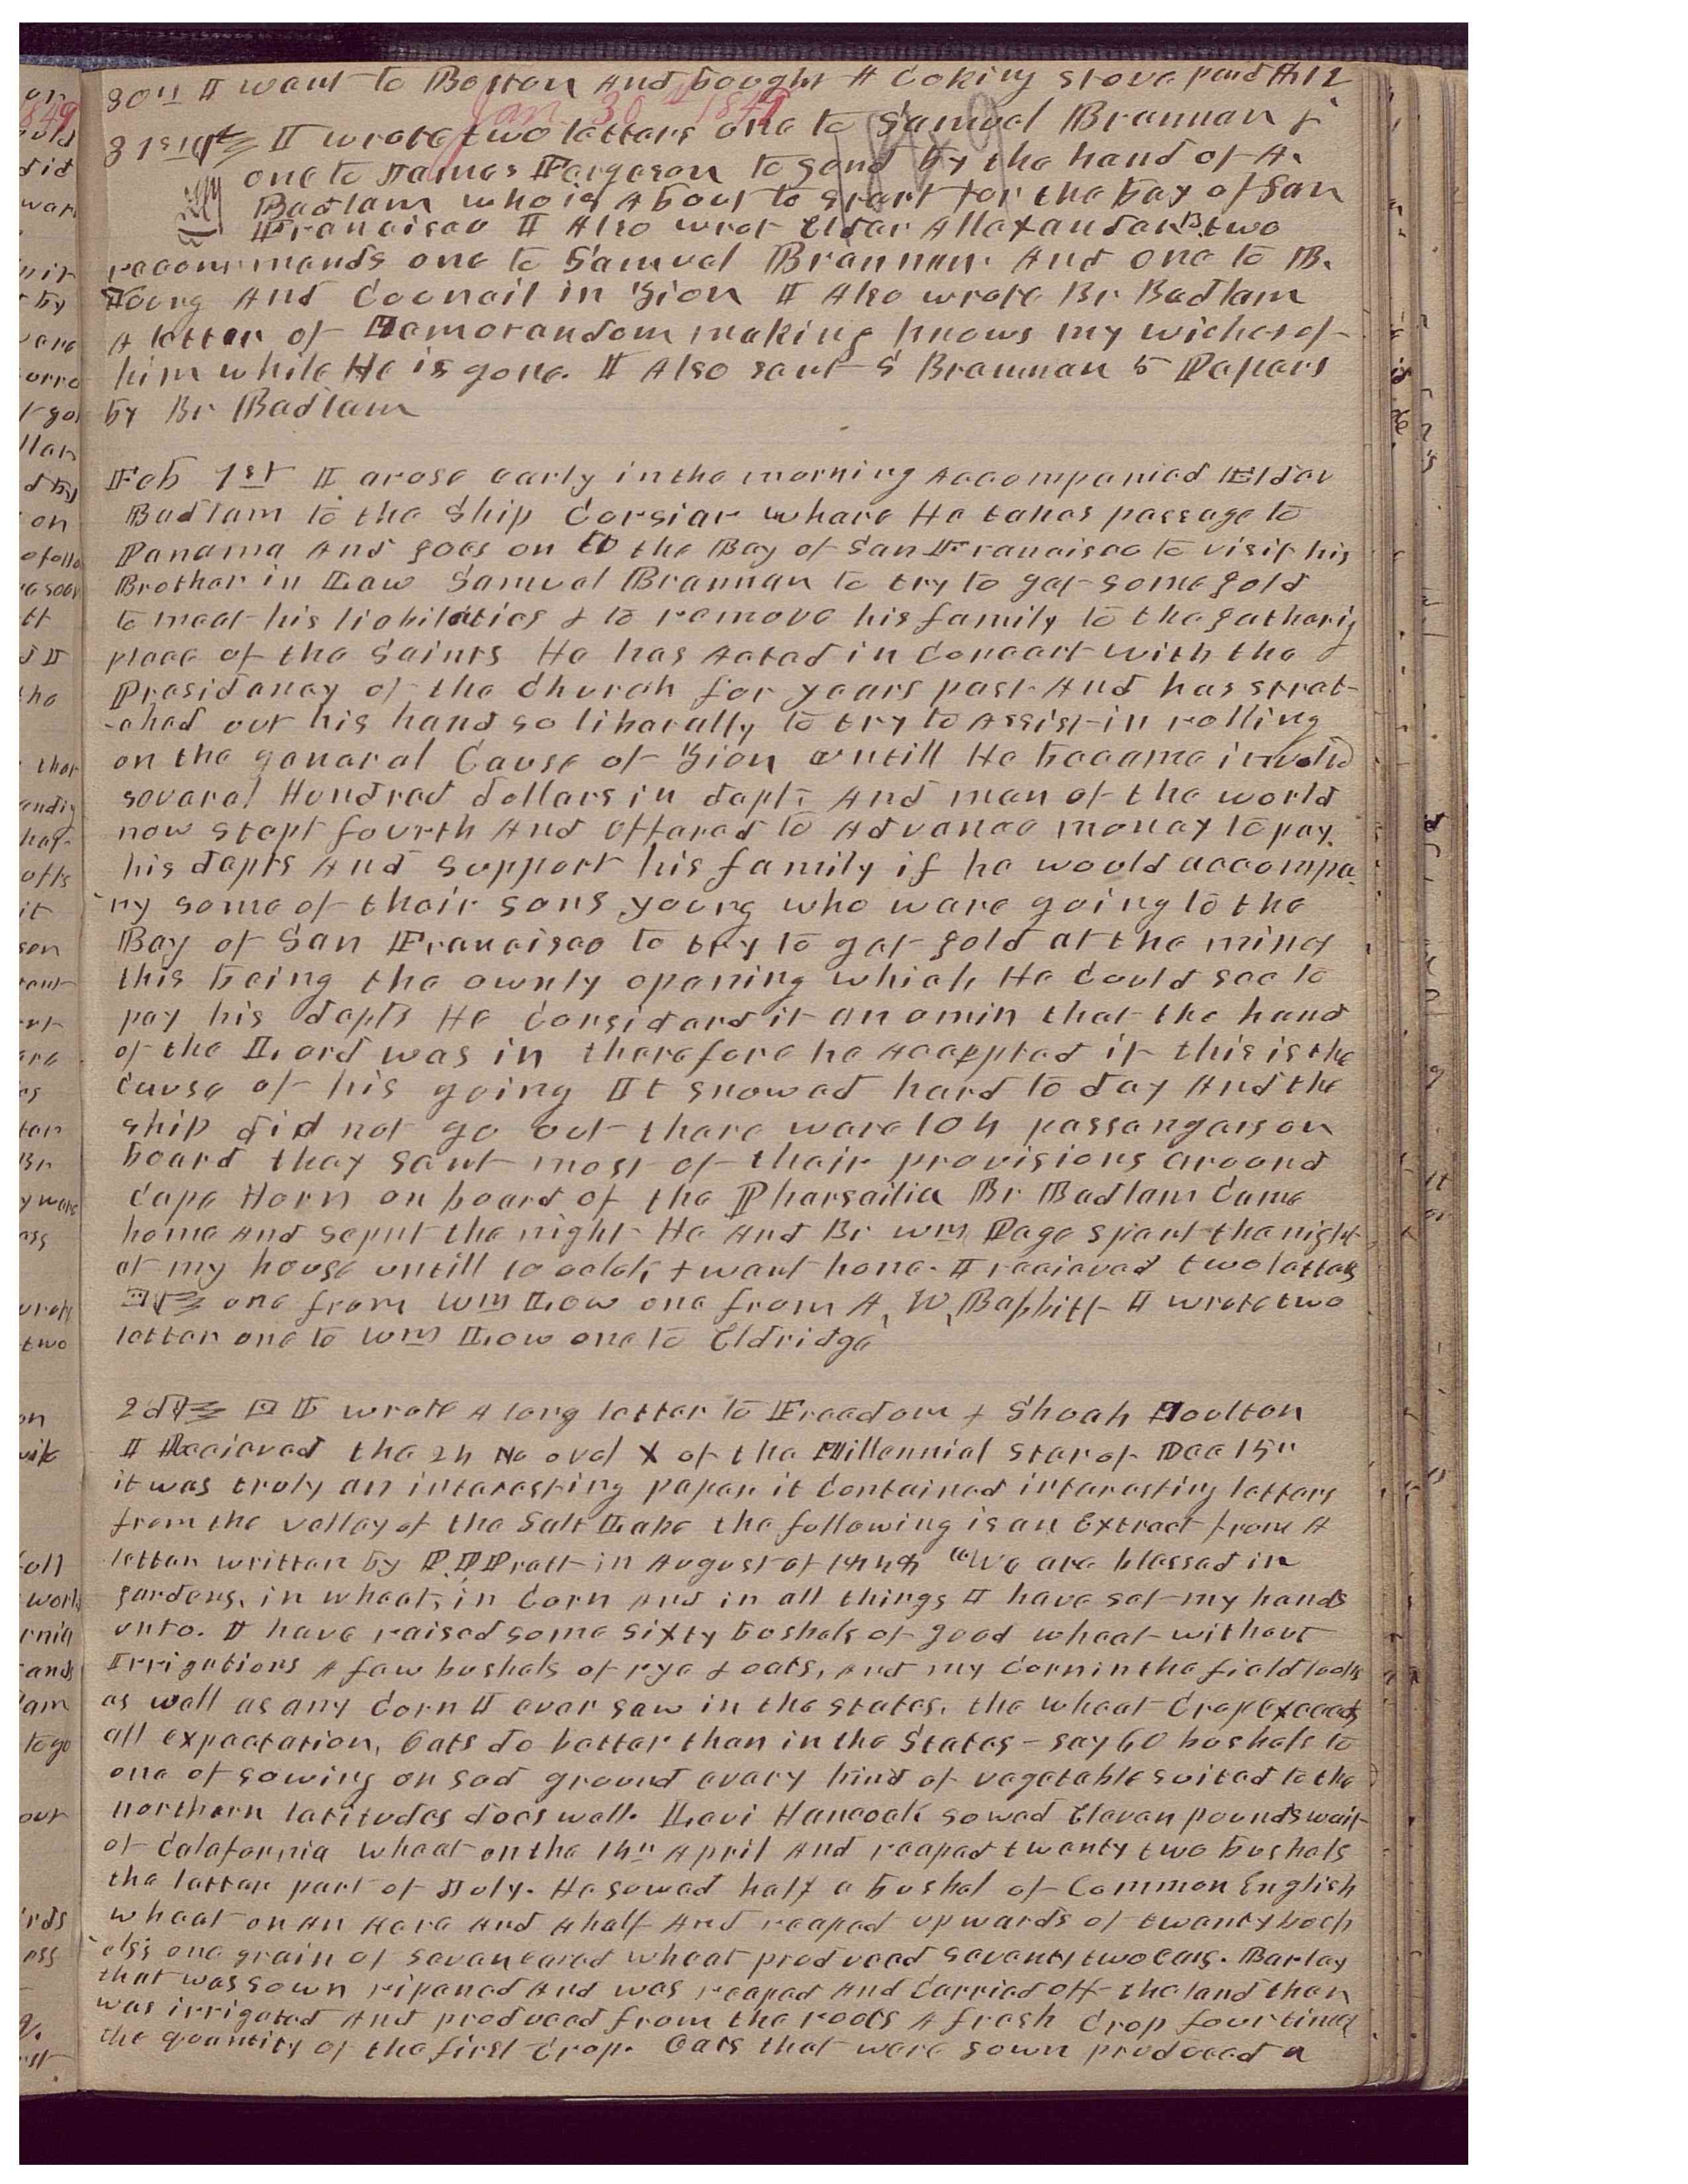 30th I went to Boston And bought A Coking stove paid $12
Jan 30th 1849
31st I wrote two letters one to Samuel Brannan &
one to James Ferguson to send by the hand of A.
Badlam who is About to start for the bay of San
Francisco I Also wrot Elder Allexander B. two
recommends one to Samuel Brannan And one to B.
Young And Council in Zion I Also wrote Br Badlam
A letter of Memorandom making knows my wishes of
him while He is gone. I Also sent S Brannan 5 Papers
by Br Badlam
Feb 1st I arose early in the morning Accompanied Elder
Badlam to the Ship Corsiar where He takes passage to
Panama And goes on to the Bay of San Francisco to visit his
Brother in Law Samuel Brannan to try to get some gold
to meet his liabilities & to remove his family to the gatherig
place of the Saints He has Acted in Concert with the
Presidency of the Church for years past And has stret-
-ched out his hand so liberally to try to Assist in rolling
on the general Cause of Zion untill He became involved
several Hundred dollars in dept, And men of the world
now stept fourth And offered to Advance money to pay
his depts And support his family if he would accompa-
ny some of their sons young who were going to the
Bay of San Francisco to try to get gold at the mines
this being the ownly opening which He Could see to
pay his depts He Considerd it an omin that the hand
of the Lord was in therefore he Accepted it this is the
Cause of his going It snowed hard to day And the
ship did not go out there were 104 passengers on
board they sent most of their provisions around
Cape Horn on board of the Pharsailia Br Badlam Came
home And sepnt the night He And Br Wm Page spent the night
at my house untill 10 oclok & went home. I recieved two letters
one from Wm Low one from A. W. Babbitt I wrote two
letter one to Wm Low one to Eldridge
2d I wrote A long letter to Freedom & Shuah Moulton
I Recieved the 24 No ovol X of the Millennial Star of Dec 15th
it was truly an interesting paper it Contained interesting letters
from the valley of the Salt Lake the following is an Extract from A
letter written by P. P. Pratt in August of 1848 "We are blessed in
gardens, in wheat, in Corn And in all things I have set my hands
unto. I have raised some sixty bushels of good wheat without
Irrigations A few bushels of rye & oats, And my Corn in the field looks
as well as any Corn I ever saw in the states. the wheat Crop exceeds
all expectation, Oats do better than in the States - say 60 bushels to
one of sowing on sod ground every kind of vegetable suited to the
northern latitudes does well. Levi Hancock sowed Eleven pounds wait
of Calafornia wheat on the 14th April And reaped twenty two bushels
the latter part of July. He sowed half a bushel of Common English
wheat on An Acre And A half And reaped upwards of twenty bosh
els one grain of seven eared wheat produced seventy two ears. Barley
that was sown ripened And was reaped And Carried off the land then
was irrigated And produced from the roots A fresh Crop four times
the quantity of the first Crop. Oats that were sown produced a